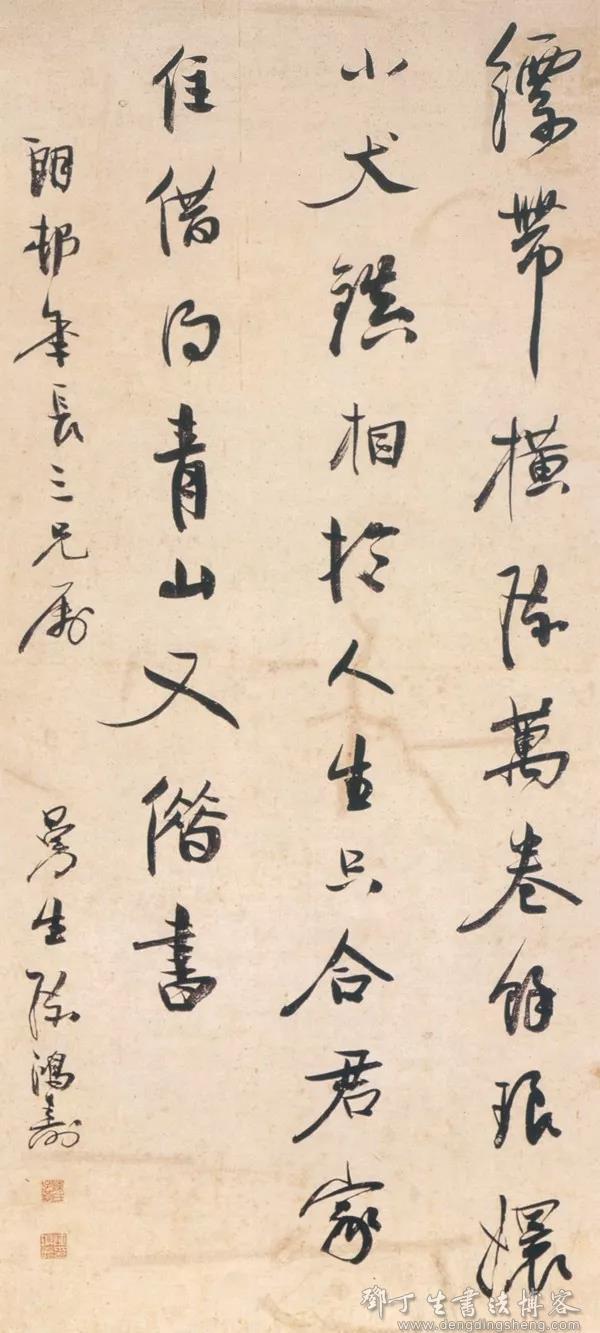 縹帶橫陳萬卷餘琅嬛
小犬鎮相於人生只合君家
住借得青山又借書
朗邨年長三兄屬
曼生陳鴻壽
鄧丁生書法博客
www.dengdingsheng.com